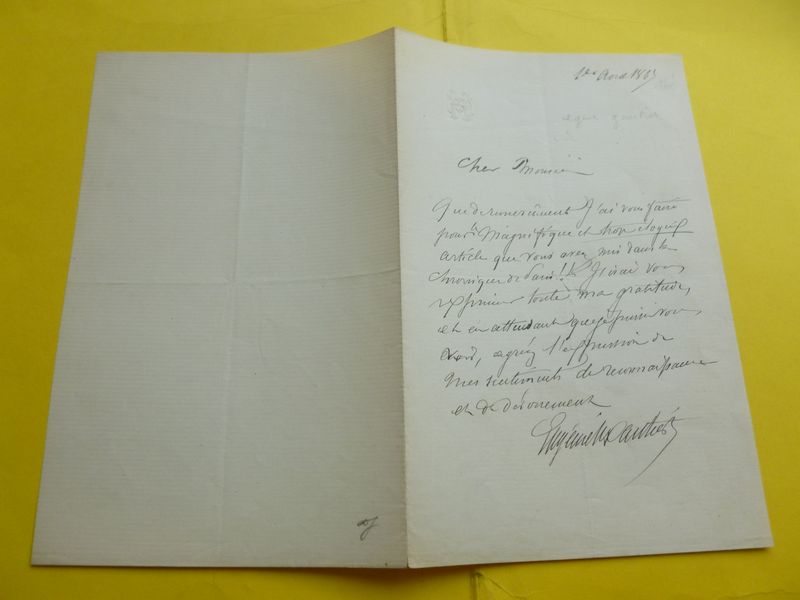 1er Avril 1865
Cher Monsieur
Que de remerciements j'ai vous faire
pour Magnifique et trop élogieux
article que vous avez mis dans la
chronique de Paris!! J'irai vous
exprimer toute ma gratitude,
et en attendant que je puisse vous
agréez l'expression de
mes sentiments de reconnaissance
et de dévouement
Eugène Gautier